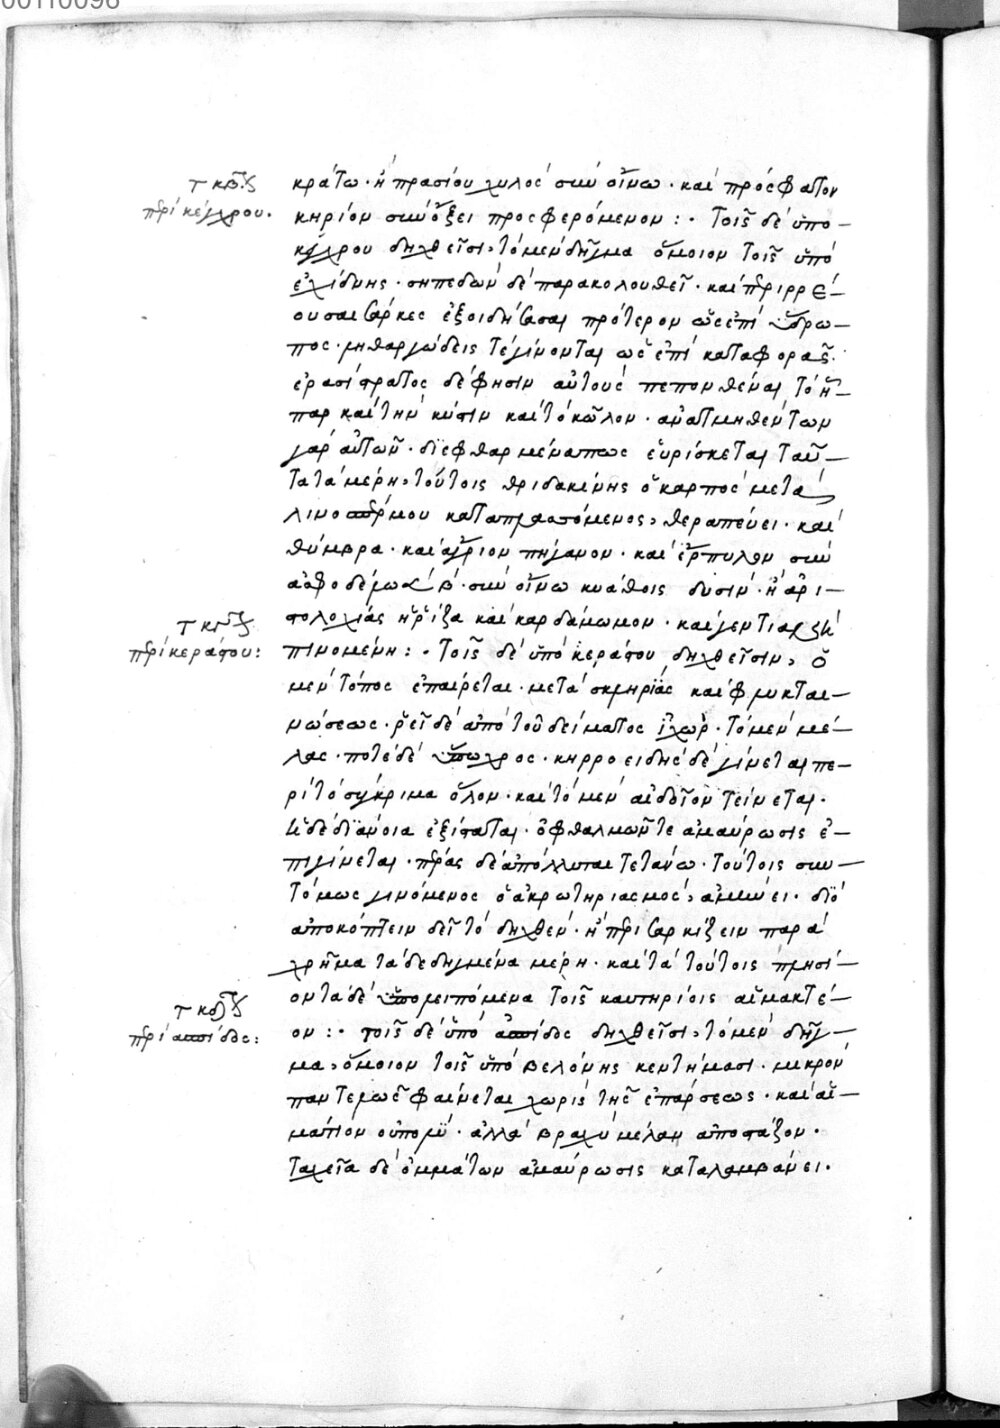 00110098
κράτω· ἢ πρασίου χυλὸς σὺν οἴνω· καὶ πρόσφατον
κηρίον σὺν ὄξει προσφερόμενον :· Τοῖς δὲ ὑπὸ
περὶ κέγχρου·
κέγχρου δηχθεῖσι, τὸ μὲν δῆγμα ὅμοιον τοῖς ὑπὸ
ἐχίδνης· σηπεδὼν δὲ παρακολουθεῖ· καὶ περιρρέ-
ουσαι σάρκες ἐξοιδήσασαι πρότερον ὡς ἐπὶ ὕδρω-
πος· ληθαργώδεις τὲ γίνονται ὡς ἐπὶ καταφορᾶς·
ἐρασίστρατος δέ φησιν αὐτοὺς πεπονθέναι τὸ ἧ-
παρ καὶ τὴν κύστιν καὶ τὸ κῶλον· ἀνατμηθέντων
γὰρ αὐτῶν· διεφθαρμένα πως εὑρίσκεται ταῦ-
τα τὰ μέρη, τούτοις θριδακίνης ὁ καρπὸς μετὰ
λινοσπέρμου καταπλασσόμενος, θεραπεύει· καὶ
θύμβρα· καὶ ἄγριον πήγανον· καὶ ἕρπυλλον σὺν
ἀσφοδέλω β· σὺν οἴνω κυάθοις δυσίν· ἢ ἀρι-
στολοχίας ἡ ῥίζα καὶ καρδάμωμον· καὶ γεντιανὴ
περὶ κεράστου:
πινομένη :· Τοῖς δὲ ὑπὸ κεράστου δηχθεῖσιν, ὁ
μὲν τόπος ἐπαίρεται· μετὰ σκληρίας καὶ φλυκται-
νώσεως· ῥεῖ δὲ ἀπὸ τοῦ δείματος ἰχὼρ· τὸ μὲν μέ-
λας· ποτὲ δὲ ὕπωχρος· κηρροειδὴς δὲ γίνεται πε-
ρὶ τὸ σύκριμα ὅλον· καὶ τὸ μὲν αἰδοῖον τείνεται·
ἡ δὲ διάνοια ἐξίσταται· ὀφθαλμῶν τε ἀμαύρωσις ἐ-
πιγίνεται· πέρας δὲ ἀπόλλυται τετάνω· τούτοις συν-
τόμως γινόμενος ὁ ἀκρωτηριασμὸς, ἀμύνει· διὸ
ἀποκόπτειν δεῖ τὸ δηχθὲν· ἢ περισαρκίζειν παρὰ
χρῆμα τὰ δεδηγμένα μέρη· καὶ τὰ τούτοις πλησί-
οντα δὲ ὑπολειπόμενα τοῖς καυτηρίοις αἱμακτέ-
περὶ ἀσπίδος:
ον :· τοῖς δὲ ὑπὸ ἀσπίδος δηχθεῖσι, τὸ μὲν δῆγ-
μα, ὅμοιον τοῖς ὑπὸ βελόνης κεντήμασι· μικρὸν
παντελῶς φαίνεται χωρὶς τῆς ἐπάρσεως· καὶ αἱ-
μάτιον οὐ πολὺ· ἀλλὰ βραχὺ μέλαν ἀποστάζον·
ταχεῖα δὲ ὀμμάτων ἀμαύρωσις καταλαμβάνει·